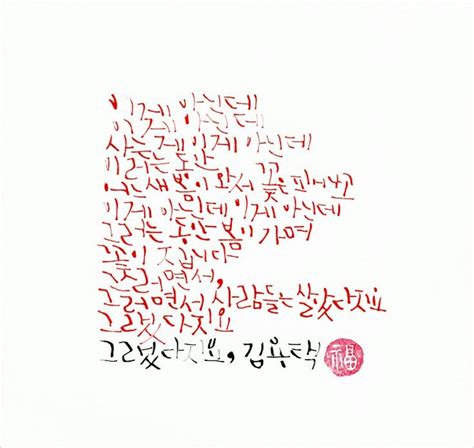 이게 아닌데
이게 아닌데
사는 게 이게 아닌데
이러는 동안
어느새 봄이 와서 꽃은 피어나고
이게 아닌데 이게 아닌데
그러는 동안 봄이 가며
꽃이 집니다
그러면서,
그러면서 사람들은 살았다지요
그랬다지요
그랬다지요, 김용택 福